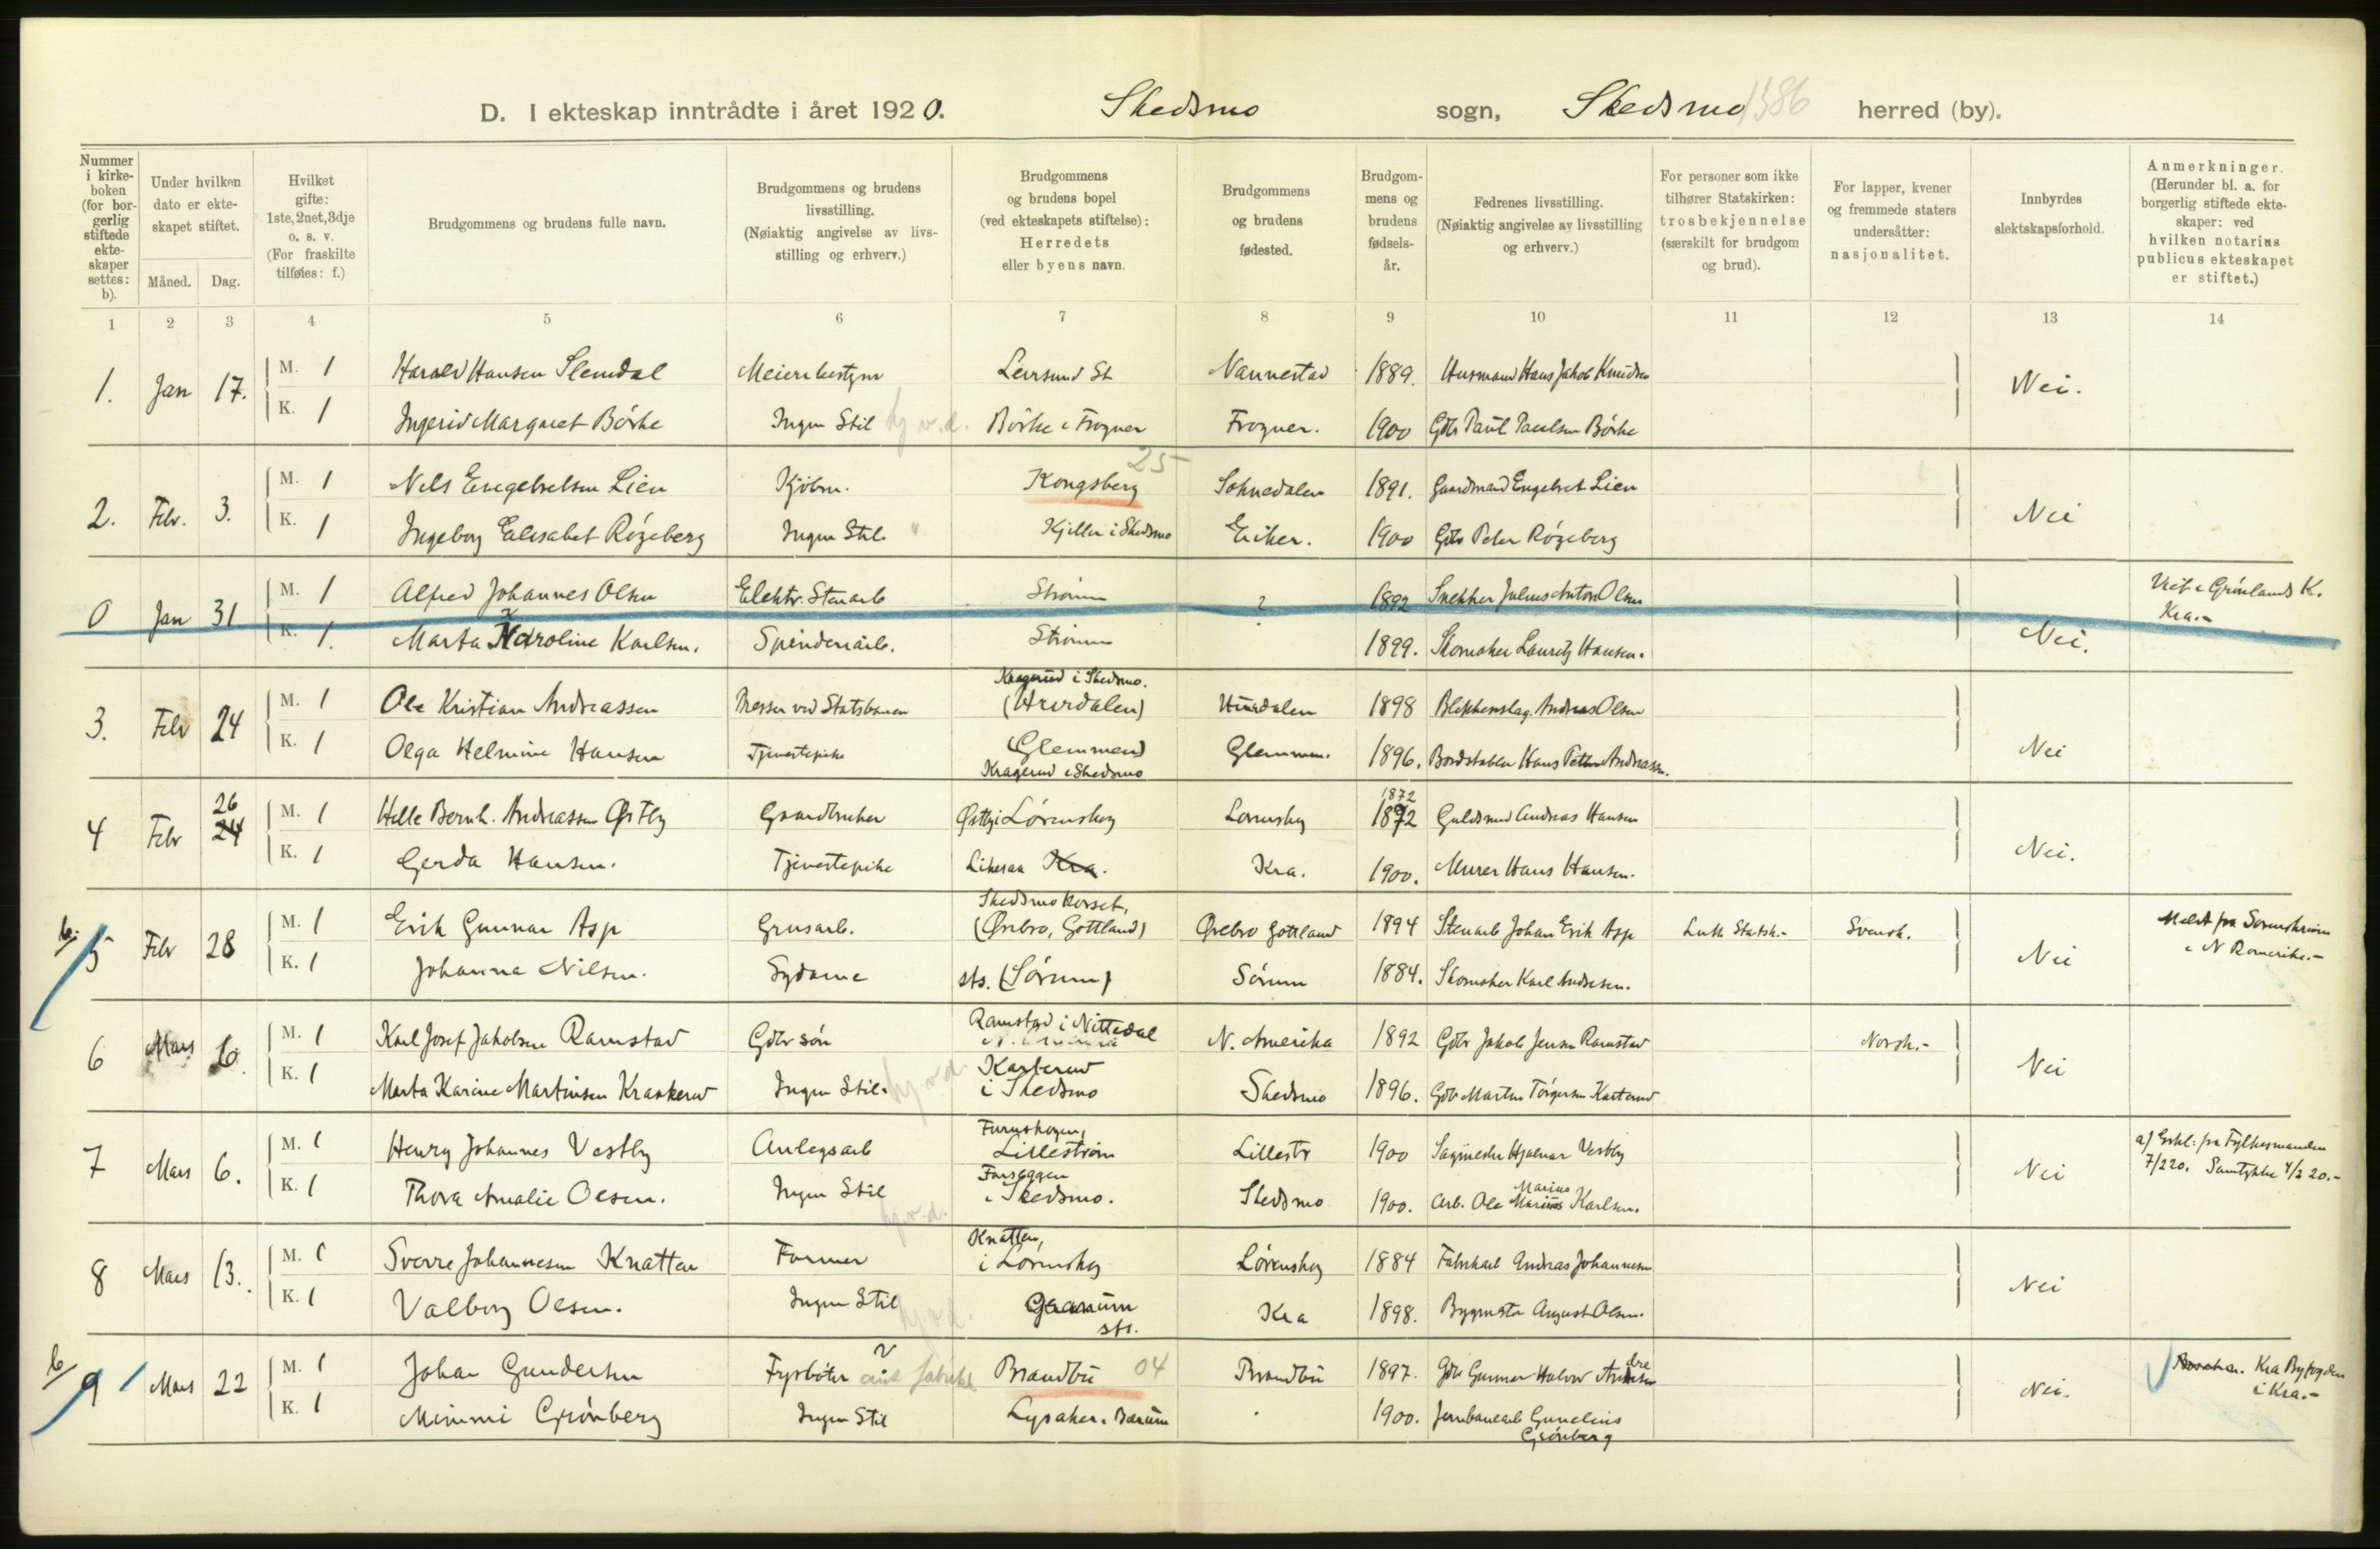 D. I ekteskap inntrådte i året 1920. Skedsmo sogn, Skedsmo 1386 herred (by).
Nummer i kirke-boken (for bor-gerlig stiftede ekte-skaper settes: b).
Under hvilken dato er ekte-skapet stiftet.
Måned. Dag.
Hvilket gifte: 1ste, 2net, 3dje o. s. v. (For fraskilte tilføies: f.)
Brudgommens og brudens fulle navn.
Brudgommens og brudens livsstilling. (Nøiaktig angivelse av livs-stilling og erhverv.)
Brudgommens og brudens bopel (ved ekteskapets stiftelse): Herredets eller byens navn.
Brudgommens og brudens fødested.
Brudgom-mens og brudens fødsels-år.
Fedrenes livsstilling. (Nøiaktig angivelse av livsstilling og erhverv.)
For personer som ikke tilhører Statskirken: trosbekjennelse (særskilt for brudgom og brud).
For lapper, kvener og fremmede staters undersåtter: nasjonalitet.
Innbyrdes slektskapsforhold.
Anmerkninger. (Herunder bl. a. for borgerlig stiftede ekte-skaper: ved hvilken notarius publicus ekteskapet er stiftet.)
1 2 3 4 5 6 7 8 9 10 11 12 13 14
1. Jan 17. M. 1 Harald Hansen Slemdal Meieribestyrer Leirsund St Nannestad 1889. Husmand Hans Jakob Knudsen Nei.
K. 1 Ingerid Margaret Børke Ingen Stil hj.v.d. Børke i Frogner Frogner. 1900 Gbr Paul Paulsen Børke
25
2. Febr. 3. M. 1 Nils Engebretsen Lien Kjøbm. Kongsberg Soknedalen 1891. Gaardmand Engebret Lien Nei
K. 1 Ingeborg Elisabet Røgeberg Ingen Stil. " Kjeller i Skedsmo Eiker. 1900 Gbr Peter Røgeberg
0 Jan 31 M. 1 Alfred Johannes Olsen Elektr. Stenarb Strømm ? 1892 Snekker Julius Anton Olsen Nei. Viet i Grønlands K. Kra.-
K. 1. Marta Karoline Karlsen. Spinderiarb. Strømm 1899. Skomaker Lauritz Hansen.
Kragerud i Skedsmo.
3. Febr 24 M. 1 Ole Kristian Andreassen Messer ved Statsbanen (Hurdalen) Hurdalen 1898 Blikkenslag. Andreas Olsen Nei
K. 1 Olga Helmine Hansen Tjenestepike (Glemmen) Glemmen. 1896. Bordstabler Hans Petter Andreassn.
Kragerud i Skedsmo
26 1872
4 Febr 24 M. 1 Helle Bernh. Andreassen Østby Gaardbruker Østby i Lørenskog Lørenskog 1872 Guldsmed Andreas Hansen Nei.
K. 1 Gerda Hansen. Tjenestepike Likesaa Kra. Kra. 1900. Murer Hans Hansen.
Skedsmokorset,
b. 5 Febr 28 M. 1 Erik Gunnar Asp Grusarb. (Ørebro, Gottland) Ørebro Gottland 1894 Stenarb Johan Erik Asp Luth Statsk.- Svensk. Nei Meldt fra Sorenskriver i N Romerike.-
K. 1 Johanna Nilsen. Sydame sts. (Sørum) Sørum 1884. Skomaker Karl Andresen.
Ramstad i Nittedal
6 Mars 6. M. 1 Karl Josef Jakobsen Ramstad Gbr søn N. Amerika N. Amerika 1892 Gbr Jakob Jensen Ramstad Norsk.- Nei
K. 1 Marta Karine Martinsen Ingen Stil. hj.v.d. i Skedsmo Skedsmo 1896. Gbr Martin Torgersen
Furuskogen,
7 Mars 6. M. 1 Henry Johannes Vestby Anlegsarb Lillestrøm Lillestr 1900 Sagmester Hjalmar Vestby Nei a) Erkl: fra Fylkesmanden 7/2 20. Samtykke 4/2 20.-
K. 1 Thora Amalie Olsen. Ingen Stil hj.v.d. i Skedsmo. Skedsmo 1900. Arb. Ole Marius Marius Karlsen.
Knatten,
8 Mars 13. M. 1 Sverre Johannesen Knatten Former i Lørenskog Lørenskog 1884 Fabrikarb Andreas Johannesen Nei
K. 1 Valborg Olsen. Ingen Stil hj.v.d. sts. Kra 1898. Bygmester August Olsen.
b/ 9 Mars 22 M. 1 Johan Gundersen Fyrbøter Brandbu 04 Brandbu 1897. Gbr Gunnar Halvor Nei. Kra Byfogden i Kra.-
K. 1 Mimmi Grønberg Ingen Stil Lysaker i Bærum 1900. Jernbanearb Gunelius Grønberg